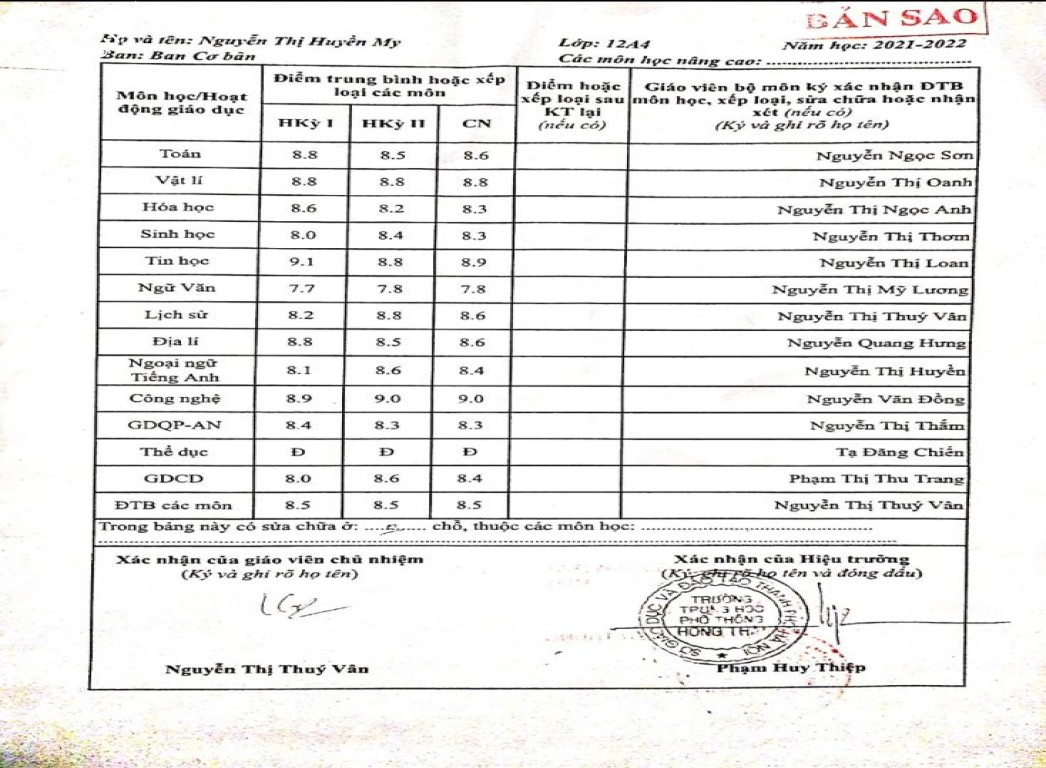 BẢN SAO
Họ và tên: Nguyễn Thị Huyền My Lớp: 12A4 Năm học: 2021-2022
Ban: Ban Cơ bản Các môn học nâng cao: ......................................
Môn học/Hoạt động giáo dục
Điểm trung bình hoặc xếp loại các môn
HKỳ I HKỳ II CN
Điểm hoặc xếp loại sau KT lại (nếu có)
Giáo viên bộ môn ký xác nhận ĐTB môn học, xếp loại, sửa chữa hoặc nhận xét (nếu có)
(Ký và ghi rõ họ tên)
Toán 8.8 8.5 8.6 Nguyễn Ngọc Sơn
Vật lí 8.8 8.8 8.8 Nguyễn Thị Oanh
Hóa học 8.6 8.2 8.3 Nguyễn Thị Ngọc Anh
Sinh học 8.0 8.4 8.3 Nguyễn Thị Thơm
Tin học 9.1 8.8 8.9 Nguyễn Thị Loan
Ngữ Văn 7.7 7.8 7.8 Nguyễn Thị Mỹ Lương
Lịch sử 8.2 8.8 8.6 Nguyễn Thị Thuý Vân
Địa lí 8.8 8.5 8.6 Nguyễn Quang Hưng
Ngoại ngữ Tiếng Anh 8.1 8.6 8.4 Nguyễn Thị Huyền
Công nghệ 8.9 9.0 9.0 Nguyễn Văn Đồng
GDQP-AN 8.4 8.3 8.3 Nguyễn Thị Thắm
Thể dục Đ Đ Đ Tạ Đăng Chiến
GDCD 8.0 8.6 8.4 Phạm Thị Thu Trang
ĐTB các môn 8.5 8.5 8.5 Nguyễn Thị Thuý Vân
Trong bảng này có sửa chữa ở: ........... chỗ, thuộc các môn học: ..........................................
Xác nhận của giáo viên chủ nhiệm
(Ký và ghi rõ họ tên)
Xác nhận của Hiệu trưởng
(Ký, ghi rõ họ tên và đóng dấu)
SỞ GIÁO DỤC VÀ ĐÀO TẠO THÀNH PHỐ HÀ NỘI
TRƯỜNG
TRUNG HỌC
PHỔ THÔNG
HỒNG THÁI
Nguyễn Thị Thuý Vân
Phạm Huy Thiệp